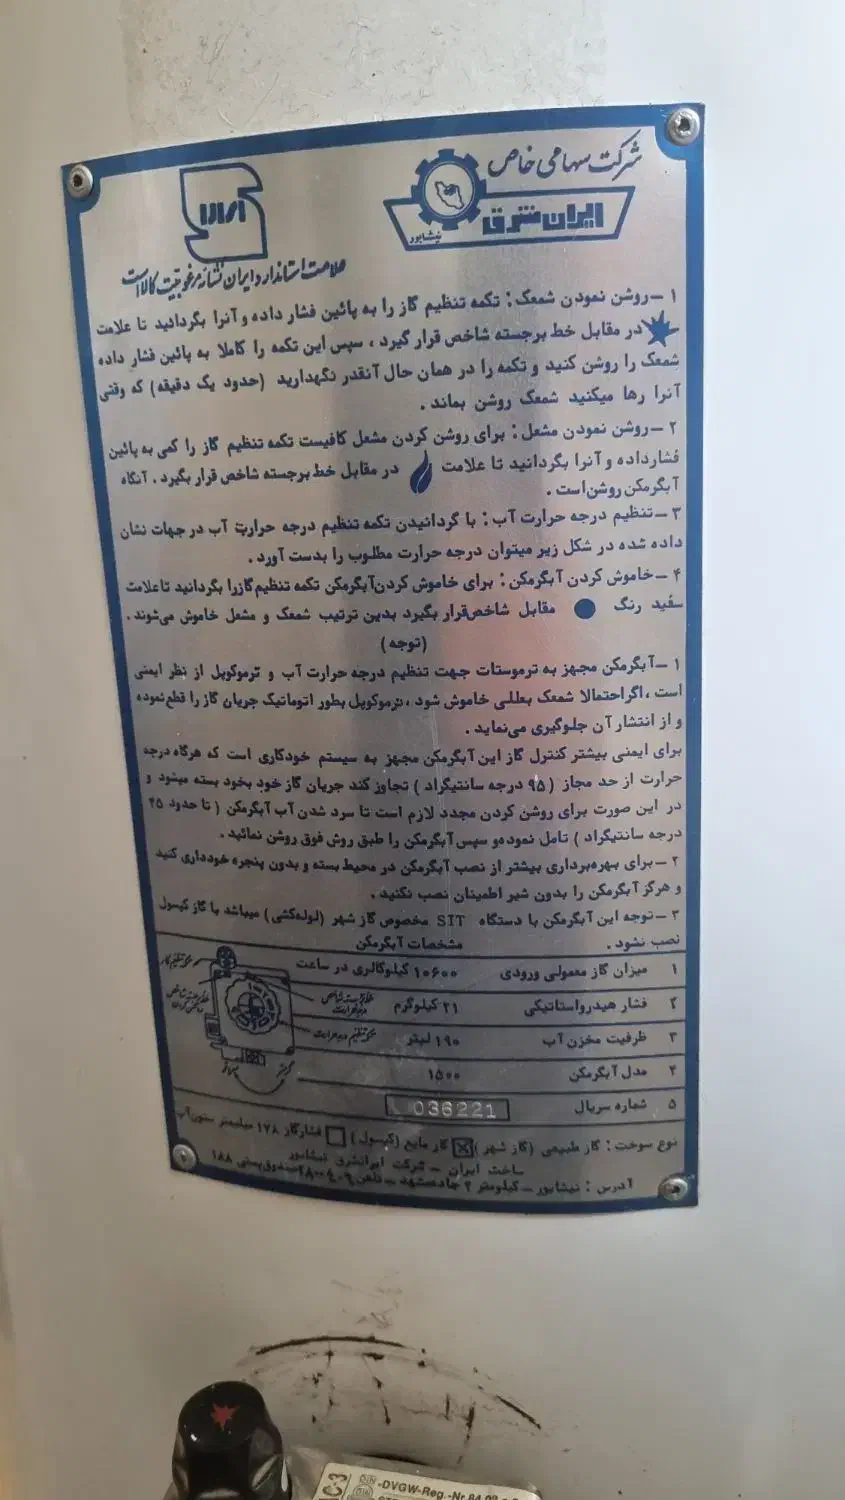 شرکت سهامی خاص
ایران شرق
نیشابور
علامت استاندارد ایران نشانه مرغوبیت کالا است
۱ – روشن نمودن شمعک : تکمه تنظیم گاز را به پائین فشار داده و آنرا بگردانید تا علامت
در مقابل خط برجسته شاخص قرار گیرد ، سپس این تکمه را کاملا به پائین فشار داده
شمعک را روشن کنید و تکمه را در همان حال آنقدر نگهدارید (حدود یک دقیقه) که وقتی
آنرا رها میکنید شمعک روشن بماند .
۲ – روشن نمودن مشعل : برای روشن کردن مشعل کافیست تکمه تنظیم گاز را کمی به پائین
فشارداده و آنرا بگردانید تا علامت در مقابل خط برجسته شاخص قرار بگیرد . آنگاه
آبگرمکن روشن است .
۳ – تنظیم درجه حرارت آب : با گردانیدن تکمه تنظیم درجه حرارت آب در جهات نشان
داده شده در شکل زیر میتوان درجه حرارت مطلوب را بدست آورد .
۴ – خاموش کردن آبگرمکن : برای خاموش کردن آبگرمکن تکمه تنظیم گازرا بگردانید تا علامت
سفید رنگ مقابل شاخص قرار بگیرد بدین ترتیب شمعک و مشعل خاموش می‌شوند .
(توجه)
۱ – آبگرمکن مجهز به ترموستات جهت تنظیم درجه حرارت آب و ترموکوپل از نظر ایمنی
است ، اگر احتمالا شمعک بعللی خاموش شود ، ترموکوپل بطور اتوماتیک جریان گاز را قطع نموده
و از انتشار آن جلوگیری می‌نماید .
برای ایمنی بیشتر کنترل گاز این آبگرمکن مجهز به سیستم خودکاری است که هرگاه درجه
حرارت از حد مجاز (۹۵ درجه سانتیگراد) تجاوز کند جریان گاز خود بخود بسته میشود و
در این صورت برای روشن کردن مجدد لازم است تا سرد شدن آب آبگرمکن ( تا حدود ۴۵
درجه سانتیگراد ) تامل نموده و سپس آبگرمکن را طبق روش فوق روشن نمائید .
۲ – برای بهره‌برداری بیشتر از نصب آبگرمکن در محیط بسته و بدون پنجره خودداری کنید
و هرگز آبگرمکن را بدون شیر اطمینان نصب نکنید .
۳ – توجه این آبگرمکن با دستگاه SIT مخصوص گاز شهر (لوله‌کشی) میباشد با گاز کپسول
نصب نشود .
مشخصات آبگرمکن
۱ میزان گاز معمولی ورودی ۱۰۶۰۰ کیلوکالری در ساعت
۲ فشار هیدرواستاتیکی ۲۱ کیلوگرم
۳ ظرفیت مخزن آب ۱۹۰ لیتر
۴ مدل آبگرمکن ۱۵۰۰
۵ شماره سریال 036221
تکمه تنظیم گاز
تکمه تنظیم درجه حرارت
نوع سوخت : گاز طبیعی (گاز شهر) گاز مایع (کپسول) فشار گاز ۱۷۸ میلیمتر ستون آب
ساخت ایران – شرکت ایرانشرق نیشابور
آدرس : نیشابور – کیلومتر ۲ جاده مشهد – تلفن صندوق پستی ۱۸۸
DIN -DVGW-Reg.-Nr.84.02